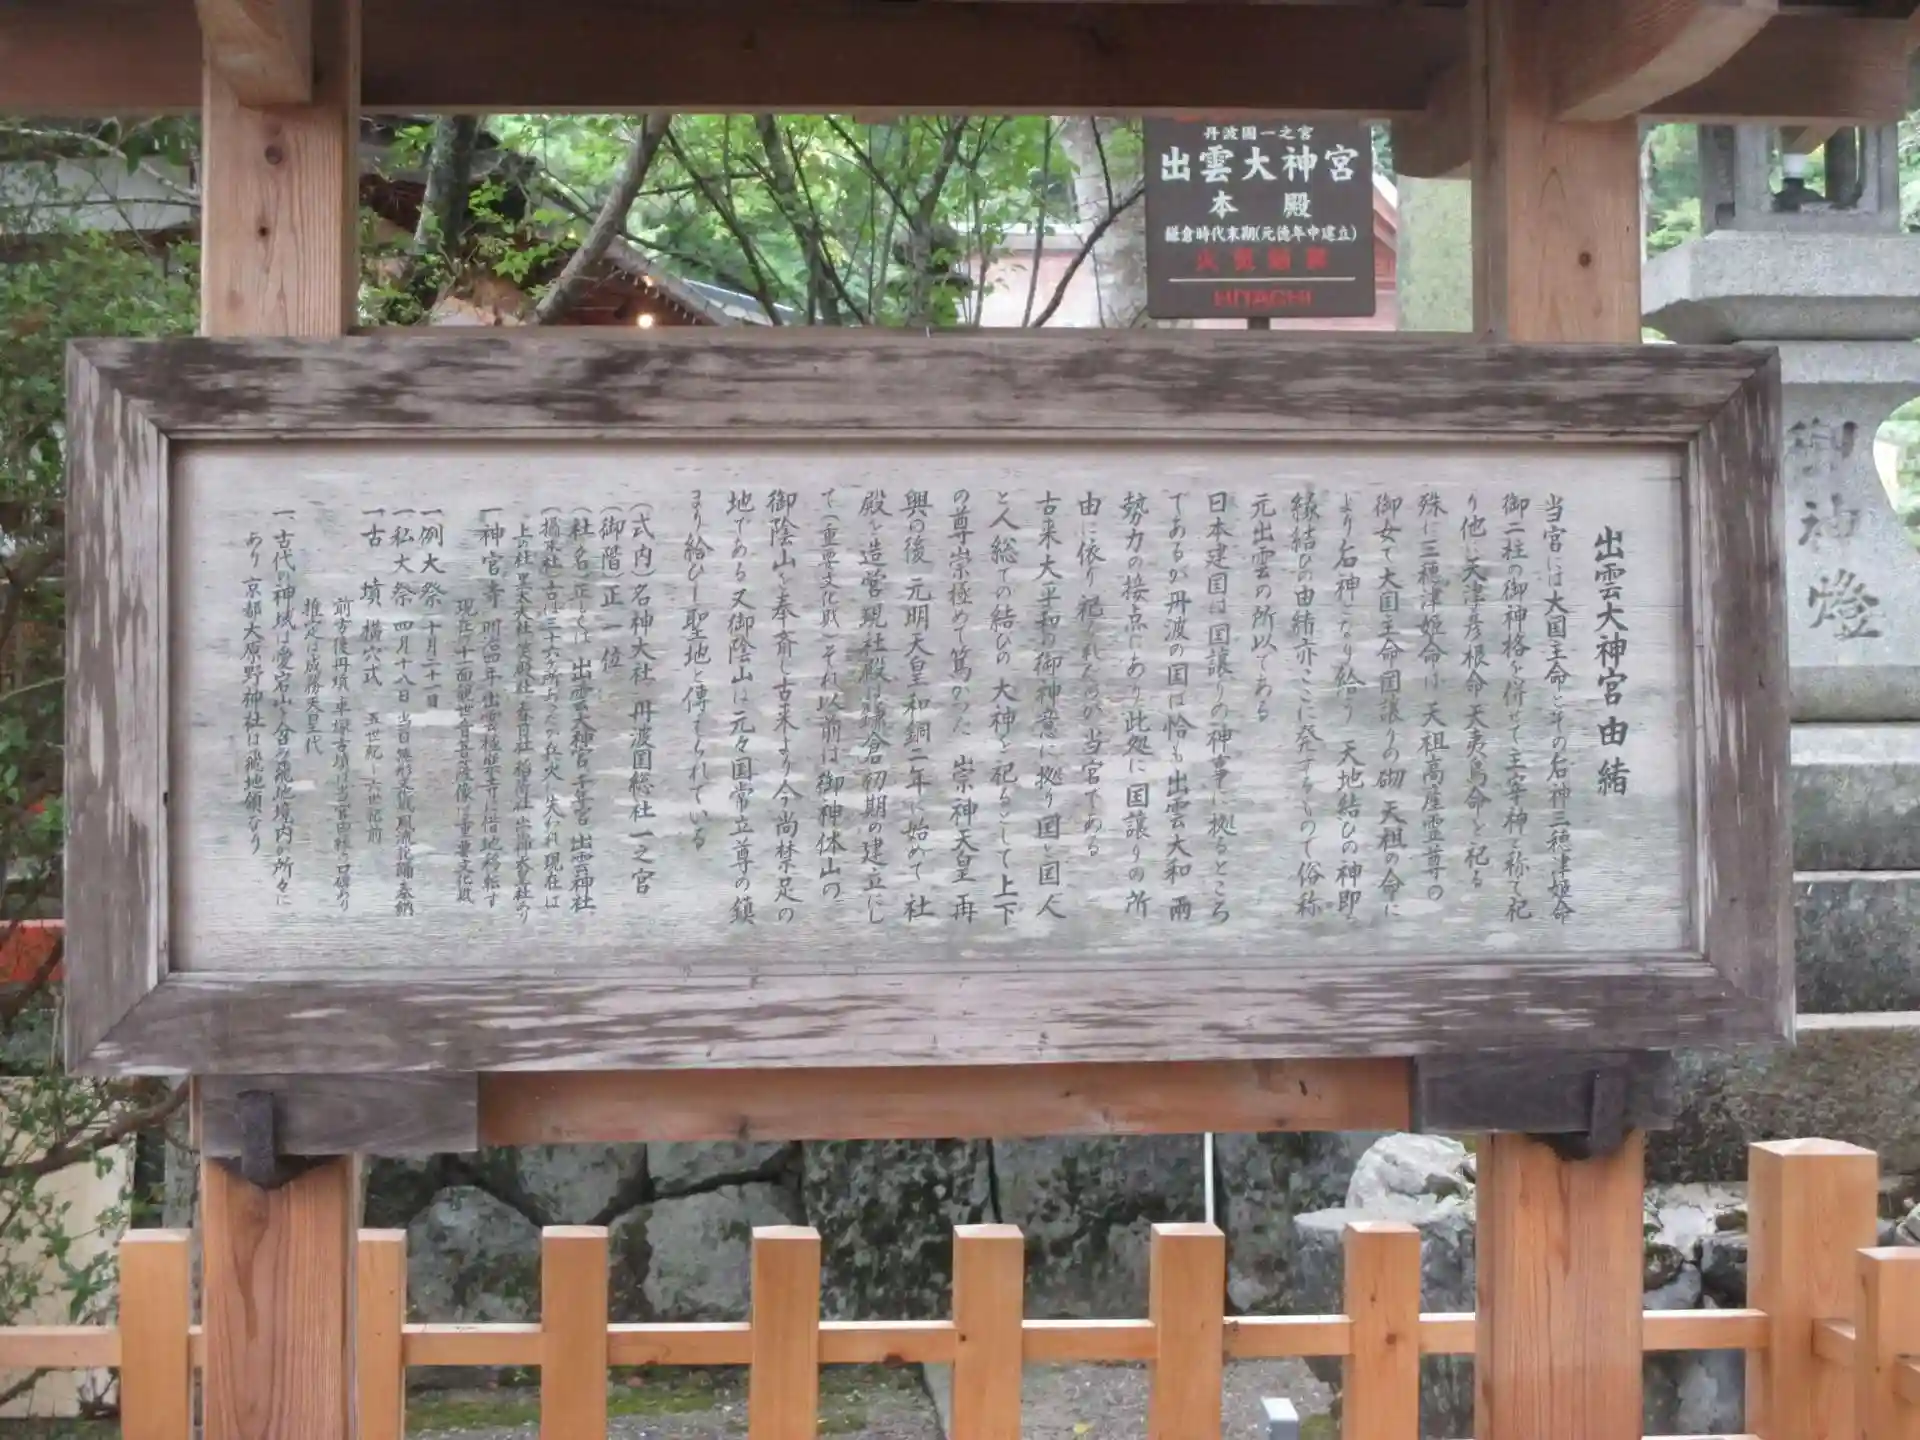 丹波國一之宮
出雲大神宮
本殿
鎌倉時代末期(元徳年中建立)
火気厳禁
HITACHI
御神燈
出雲大神宮由緒
当宮には大国主命とその后神三穂津姫命
御二柱の御神格を併せて主宰神と称て祀
り他に天津彦根命 天夷鳥命と祀る
殊に三穂津姫命は 天祖高産霊尊の
御女で大国主命国譲りの砌 天祖の命に
より后神となり給う 天地結びの神即
縁結びの由緒亦ここに発するもので俗称
元出雲の所以である
日本建国は国譲りの神事に拠るところ
であるが丹波の国は恰も出雲大和 両
勢力の接点にあり此処に国譲りの所
由に依り祀られたのが当宮である
古来大平和の御神意に拠り国と国人
と人総ての結びの大神と祀るとして上下
の尊崇極めて篤かった 崇神天皇 再
興の後 元明天皇 和銅二年に始めて 社
殿を造営 現社殿は鎌倉初期の建立にし
て(重要文化財)それ以前は御神体山の
御陰山を奉斎し古来より今尚禁足の
地である又御陰山は元々国常立尊の鎮
まり給ひし聖地と傳えられている
(式内)名神大社 丹波国総社 一之宮
(御階)正一位
(社名)正しくは 出雲大神宮 千年宮 出雲神社
(攝末社)古は三十六ヶ所あったが兵火に失われ現在は
上の社 黒太夫社 笑殿社 春日社 稲荷社 出御太皇社のり
一神宮寺 明
現在十一面観世音菩薩像は重要文化財
一例大祭 十月二十一日
一私大祭 四月十八日 当日無形文化財風流花踊奉納
一古 墳 横穴式 五世紀-六世紀前
前方後円墳 車塚古墳は当
推定は成務天皇代
一、古代の神域は愛宕山を含み飛地境内の所々に
あり 京都大原野神社は飛地領なり